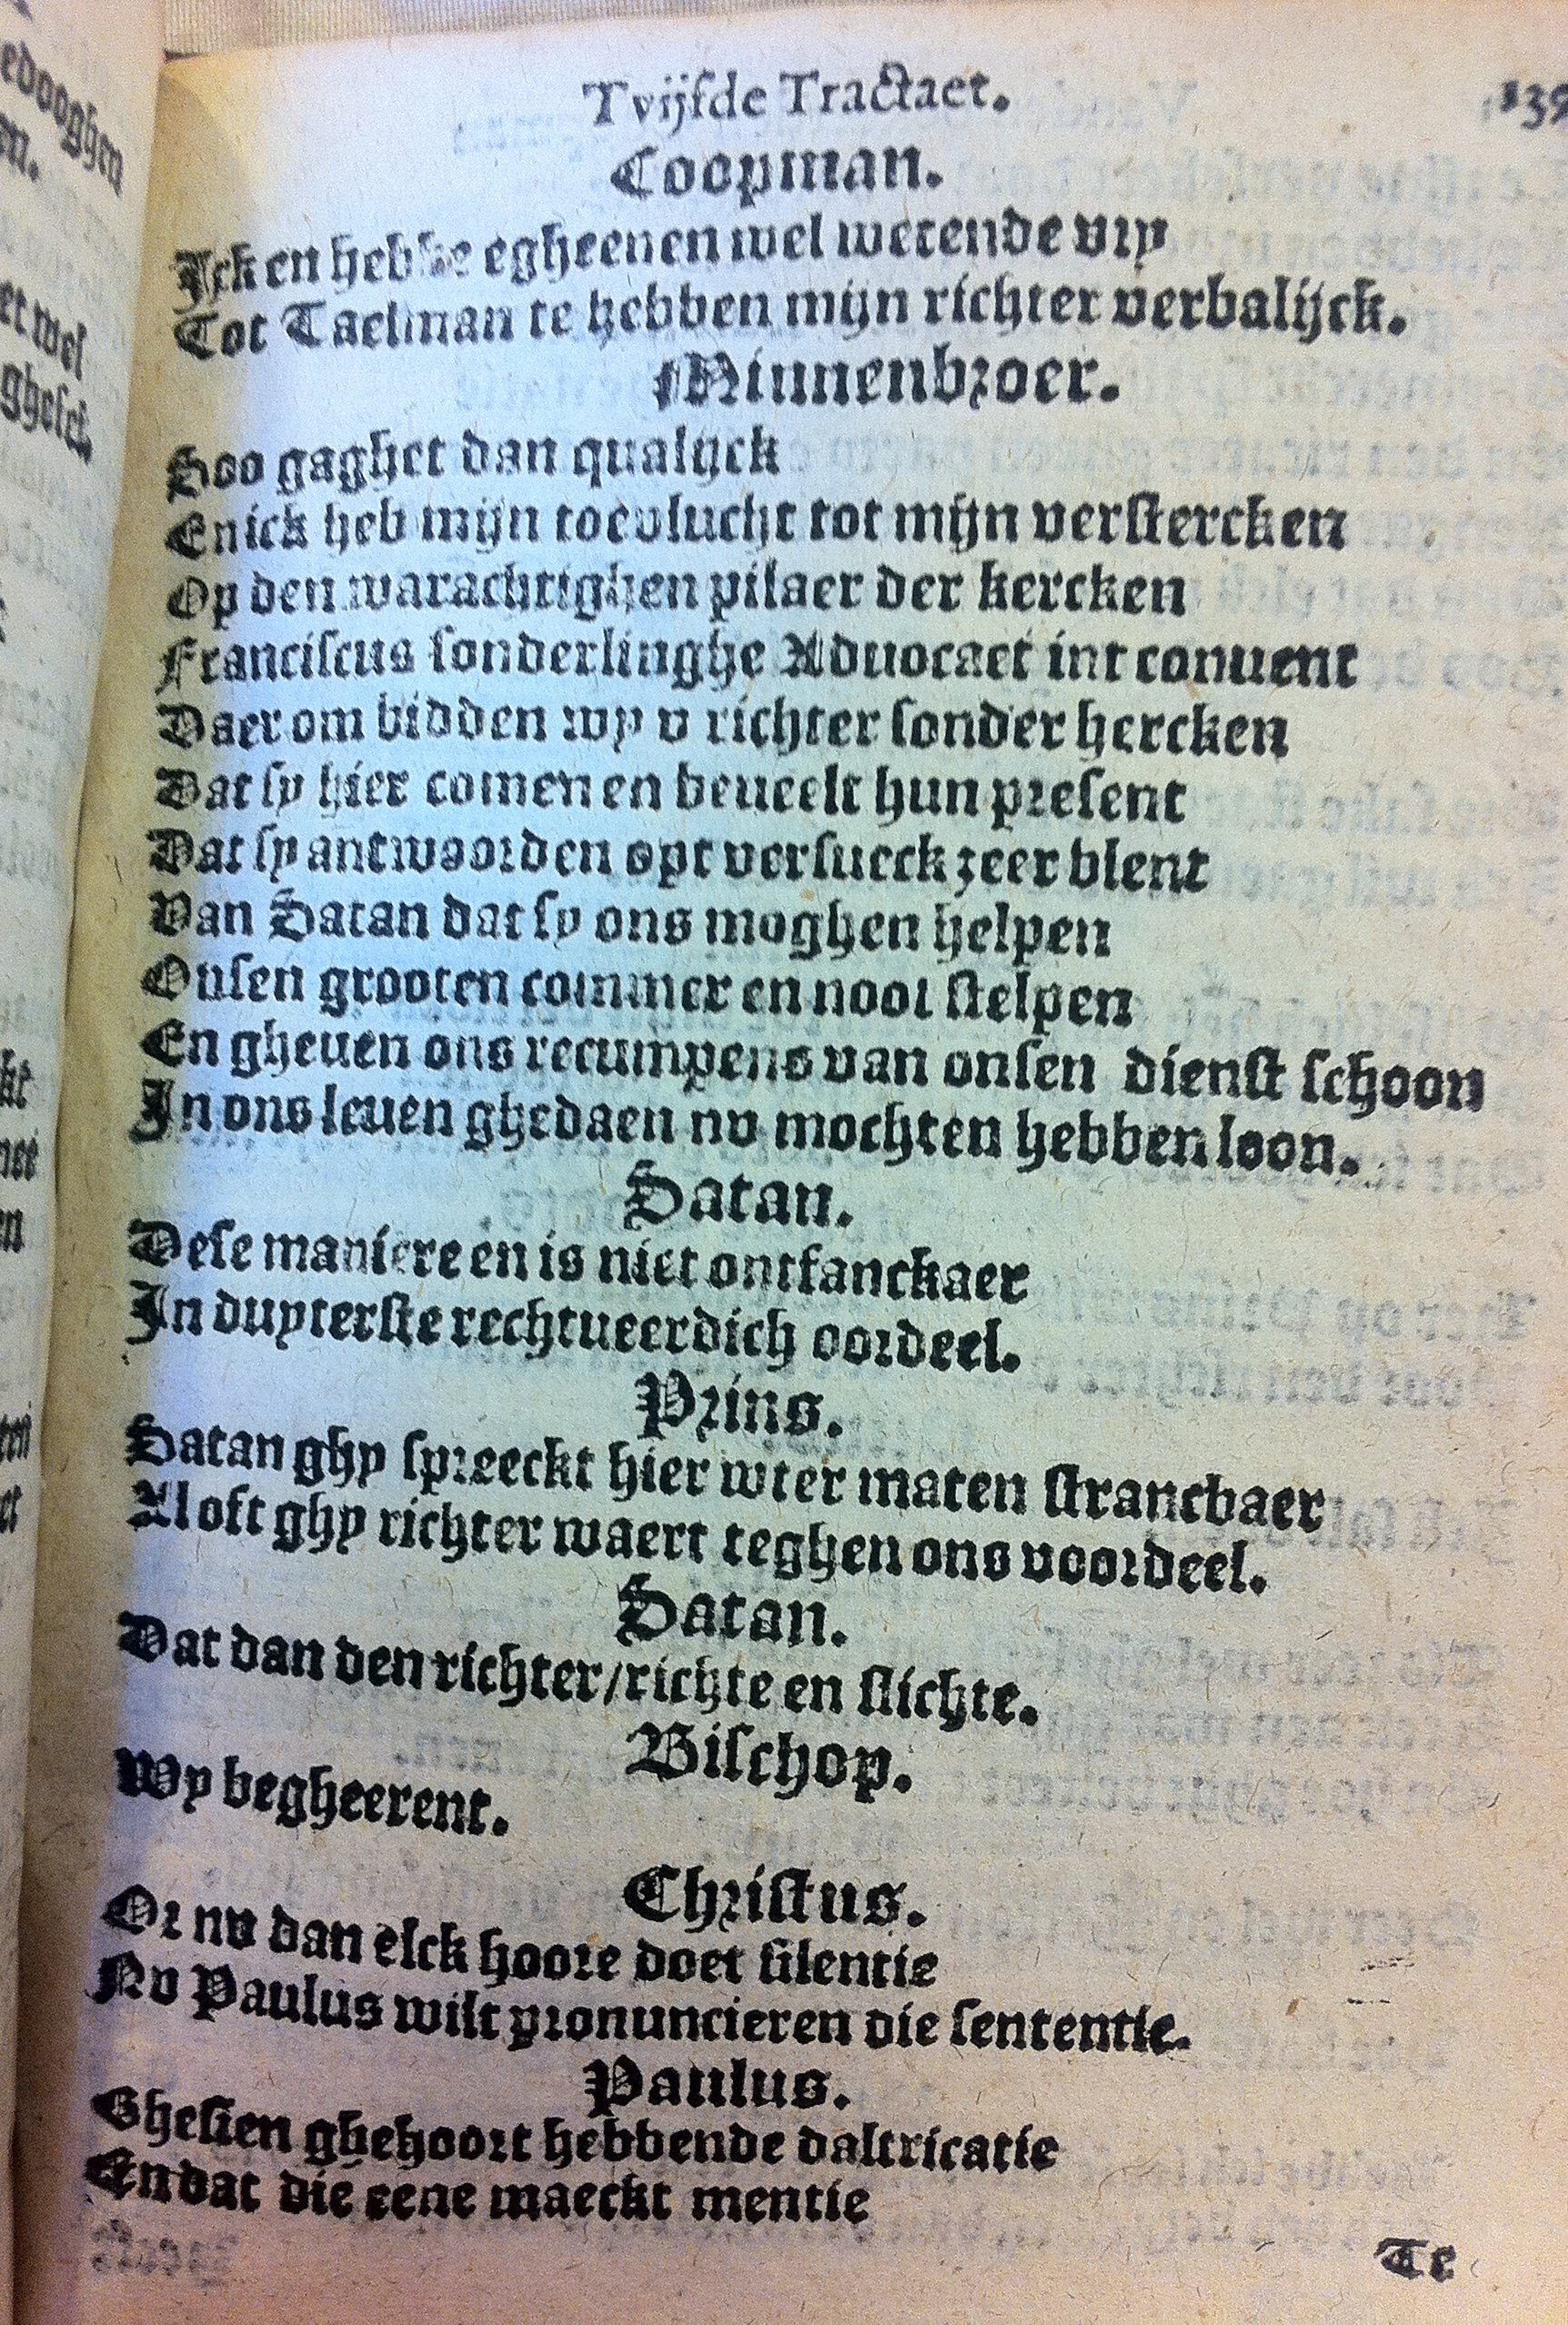 Tvijfde Tractaet. 139
Coopman.
Ick en hebbe egheenen wel wetende vry
Tot Taelman te hebben mijn richter verbalijck.
Minnenbroer.
Soo gaghet dan qualijck
En ick heb mijn toevlucht tot mijn verstercken
Op den warachtighen pilaer der kercken
Franciscus sonderlinghe Aduocaet int conuent
Daer om bidden wy v richter sonder hercken
Dat sy hier comen en beueelt hun present
Dat sy antwoorden opt versueck zeer blent
Van Satan dat sy ons moghen helpen
Onsen grooten commer en noot stelpen
En gheuen ons recumpens van onsen dienst schoon
In ons leuen ghedaen nv mochten hebben loon.
Satan.
Dese maniere en is niet ontfanckaer
In duyterste rechtueerdich oordeel.
Prins.
Satan ghy spreeckt hier wter maten strancbaer
Al oft ghy richter waert teghen ons voordeel.
Satan.
Dat dan den richter/richte en slichte.
Bisschop.
Wy begheerent.
Christus.
Or nv dan elck hoore doet silentie
Nv Paulus wilt pronuncieren die sententie.
Paulus.
Ghesien ghehoort hebbende daltricatie
En dat die eene maeckt mentie
Te
edooghen
et wel
ghelet.